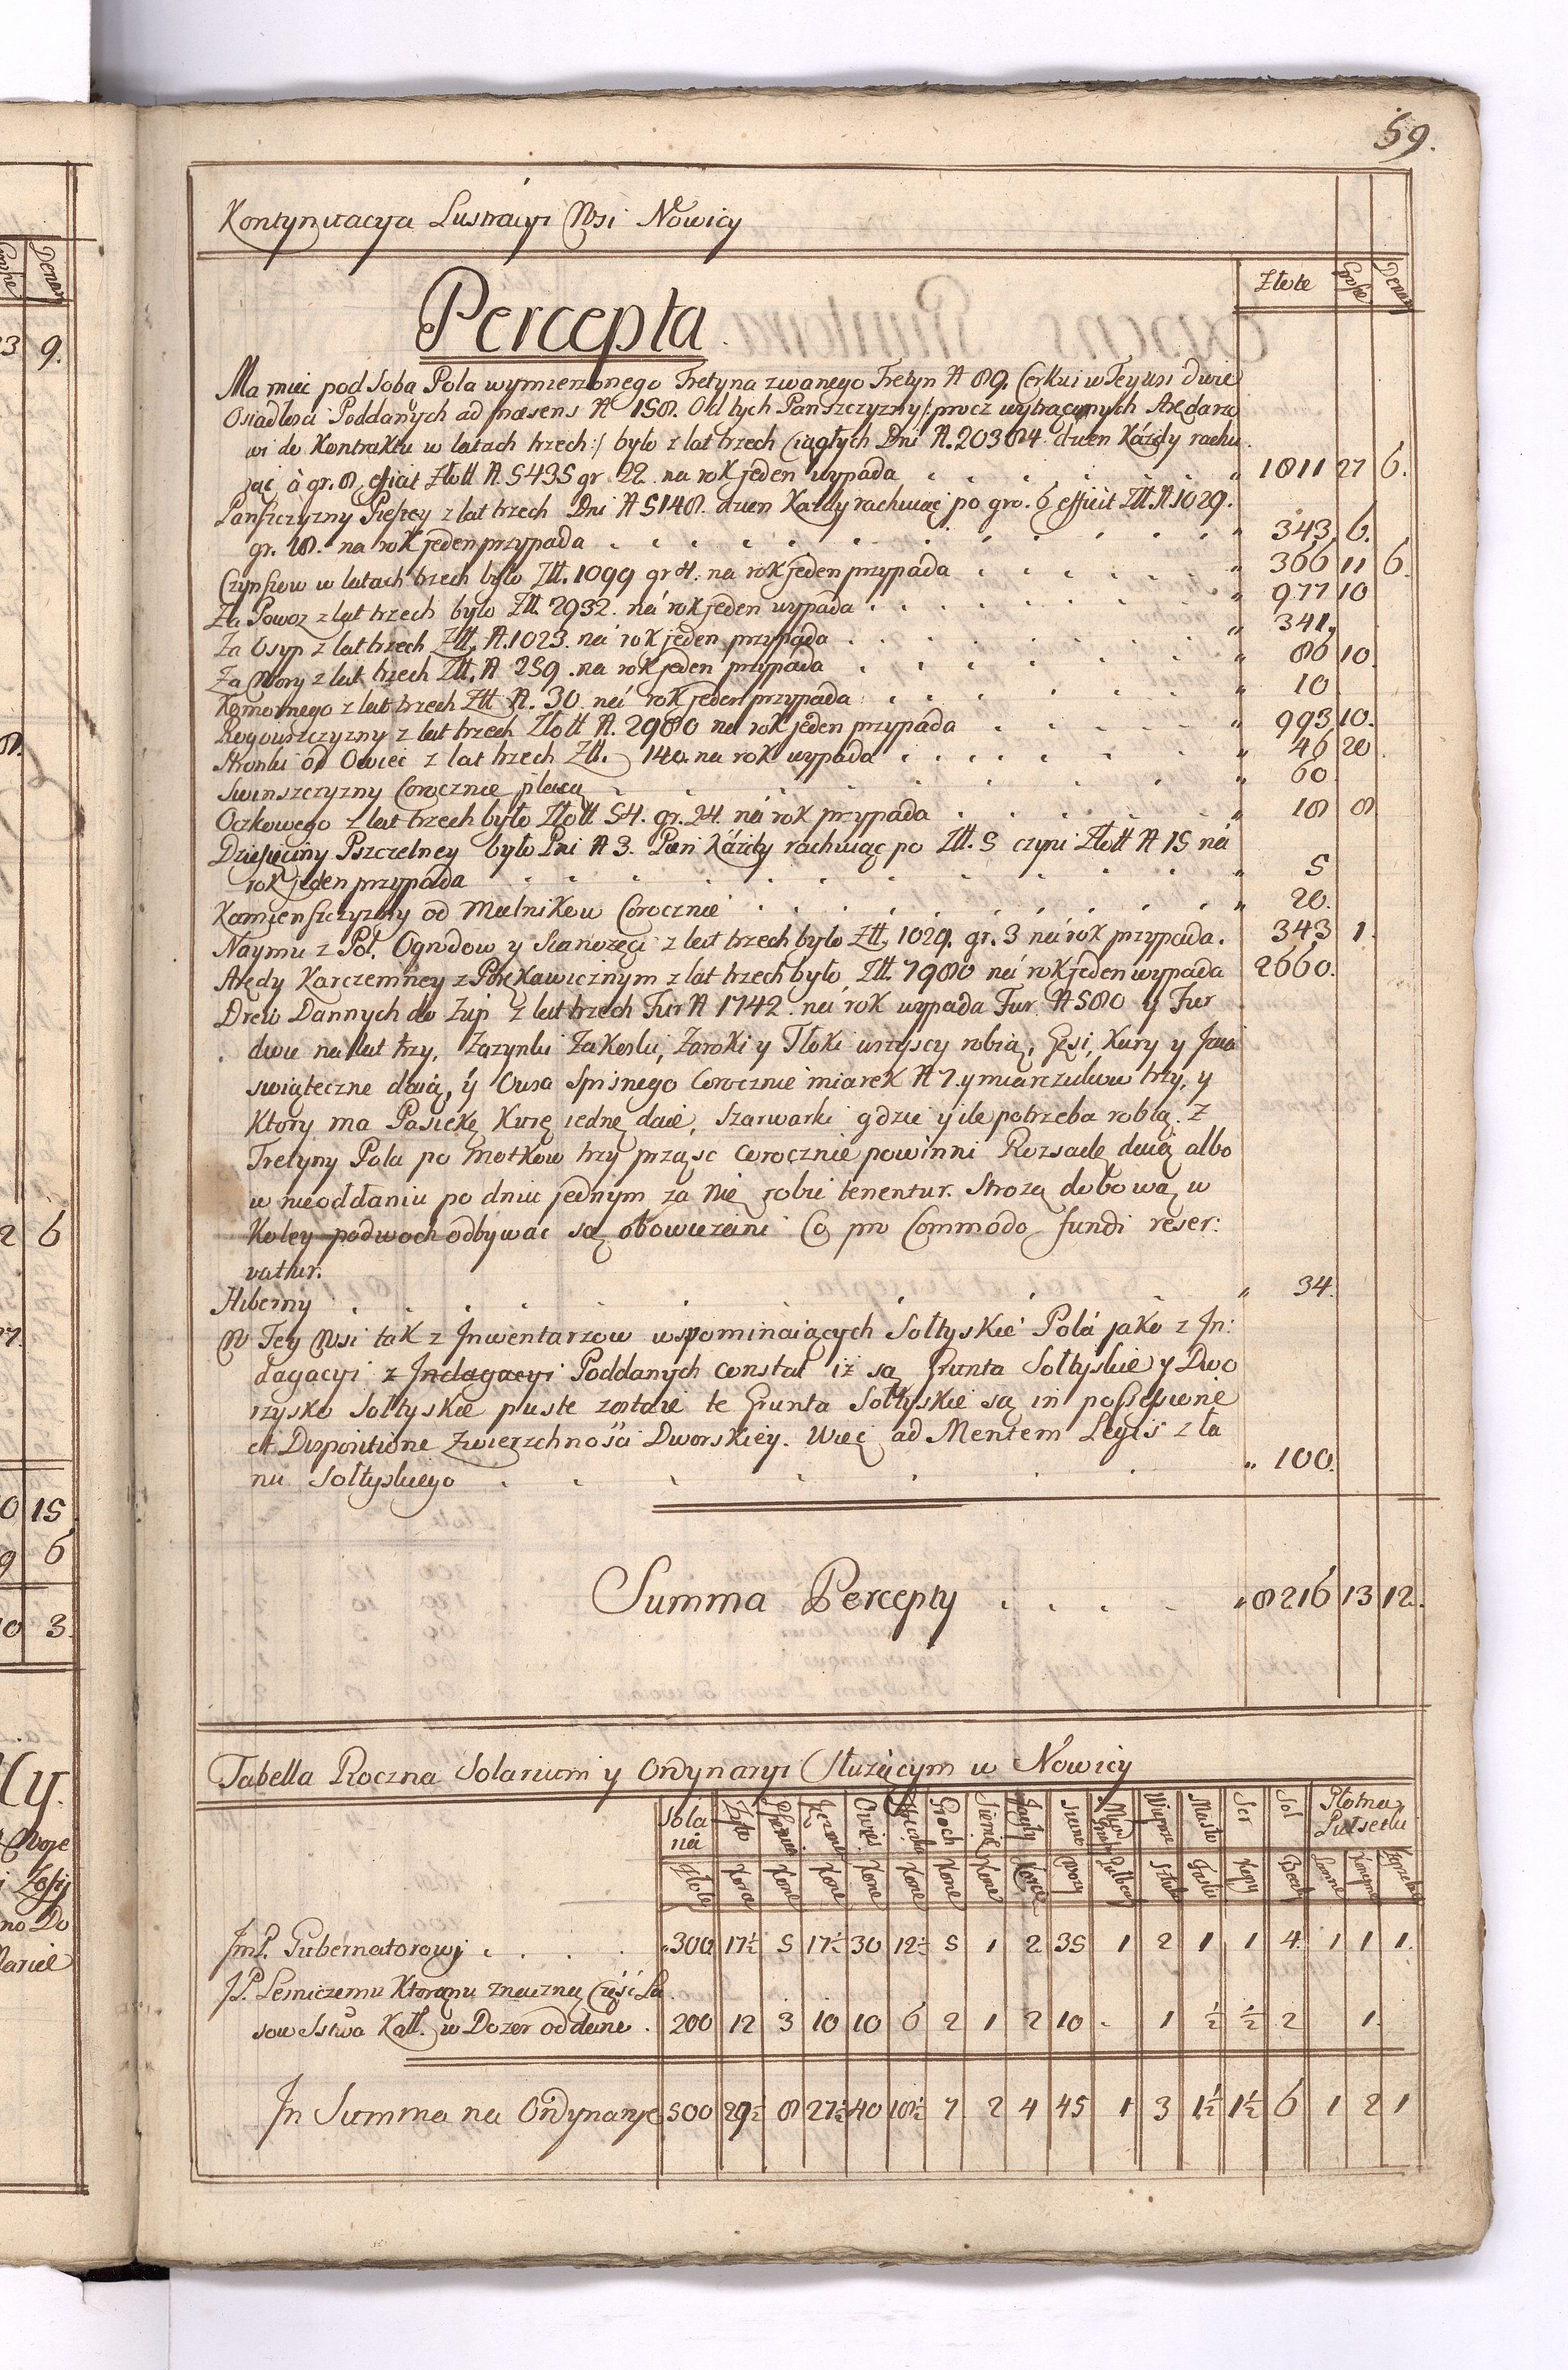 59.
Kontynuacya Lustracyi Wsi Nowicy
Złote Grosze Denar
Percepta
Ma mieć pod Sobą Pola wymierzonego Tretyna zwanego Tretyn N 89. Cerkwi w Teywsi dwie
Osiadłosci Poddanych ad præsens N 158. Od tych Panszczyzny /: procz wytrąconych Arędarzo
wi do Kontraktu w latach trzech :/ było z lat trzech Ciągłych Dni N. 20384. dzien Káżdy rachu
jąc à gr. 8. efficit Złott N. 5435 gr 22. na rok jeden wypada " 1811 27 6.
Panszczyzny Pieszey z lat trzech Dni N 5148. dzien Każdy rachuiąc po gro. 6 efficit Złt. N. 1029.
gr. 18. na rok jeden przypada " 343, 6.
Czynszow w latach trzech było Złt. 1099 gr 4. na rok jeden przypáda " 366 11 6.
Za Powoz z lat trzech było Złt. 2932. ná rok jeden wypada " 977 10
Za Osyp z lat trzech Złt. N. 1023. ná rok jeden przypáda " 341,
Za Wory z lat trzech Złt. N 259. na rok jeden przypáda " 86 10.
Komornego z lat trzech Złt N. 30. ná rok jeden przypada " 10
Rogowszczyzny z lat trzech Złott N. 2980 na rok jeden przypada " 993 10.
Stronki od Owiec z lat trzech Złt. 140. na rok wypáda " 46 20
Swinszczyzny Corocznie płacą " 60.
Oczkowego z lat trzech było Złott 54. gr. 24. ná rok przypada " 18 8
Dziesięciny Pszczelney było Pni N 3. Pień Káżdy rachuiąc po Złt. 5 czyni Złott N 15 ná
rok jeden przypáda " 5
Kamienszczyzny od Mielnikow Corocznie " 20.
Naymu z Pol, Ogrodow y Sianożęci z lat trzech było Złt. 1029. gr. 3 ná rok przypada. 343 1.
Arędy Karczemney z Porękawicznym z lat trzech było Złt. 7980 ná rok jeden wypada 2660.
Drew Dannych do Żup z lat trzech Fur N 1742. ná rok wypada Fur. N 580 y Fur
dwie na lat trzy. Zażynki Zakoski, Zaroki y Tłoki wszyscy robią, Gęsi, Kury y Jaia
swiąteczne daią, y Owsa Spisnego Corocznie miarek N 7. y miarczukow trzy, y
Ktory ma Pasiekę Kurę iednę daie, Szarwarki gdzie y ile potrzeba robią. Z
Tretyny Pola po motkow trzy prząsc corocznie powinni Rozsadę daią albo
w nieoddaniu po dniu jednym za Nię robić tenentur. Stroża dobową w
Koley podwoch odbywać są obowiezani Co pro Commodo fundi reser:
vatur.
Hiberny " 34.
W Tey Wsi tak z Inwentarzow wspominaiących Sołtyskie Polá jako z In:
dagacyi z Indagacyi Poddanych constat iż są Grunta Sołtyskie y Dwo
rzysko Sołtyskie puste zostaie te Grunta Sołtyskie są in possessione
et Dispositione Zwierzchności Dworskiey. Więc ad Mentem Legis z ła
nu Sołtyskiego " 100.
Summa Percepty " 8216 13 12.
Tabella Roczna Solarium y Ordynaryi Służącym w Nowicy
Sola ria Żyto Jęczmi Owies Groch Siemie Jagły Wieprze Masło Ser Sol Płotna Pułsetki
Złote Korce Korce Wozy Sztuk Kopy Konopne Zgrzebne
JmP. Gubernatorowj 300 17½ 5 17½ 30 12½ 5 1 2 35 1 2 1 1 4. 1 1 1.
JP. Lesniczemu Ktoremu znaczna Częsć La
sow Sstwa Kałł. w Dozor oddane 200 12 3 10 10 6 2 1 2 10 - 1 ½ ½ 2 1.
In Summa na Ordynaryę 500 29½ 8 27½ 40 18½ 7 2 4 45 1 3 1½ 1½ 6 1 2 1